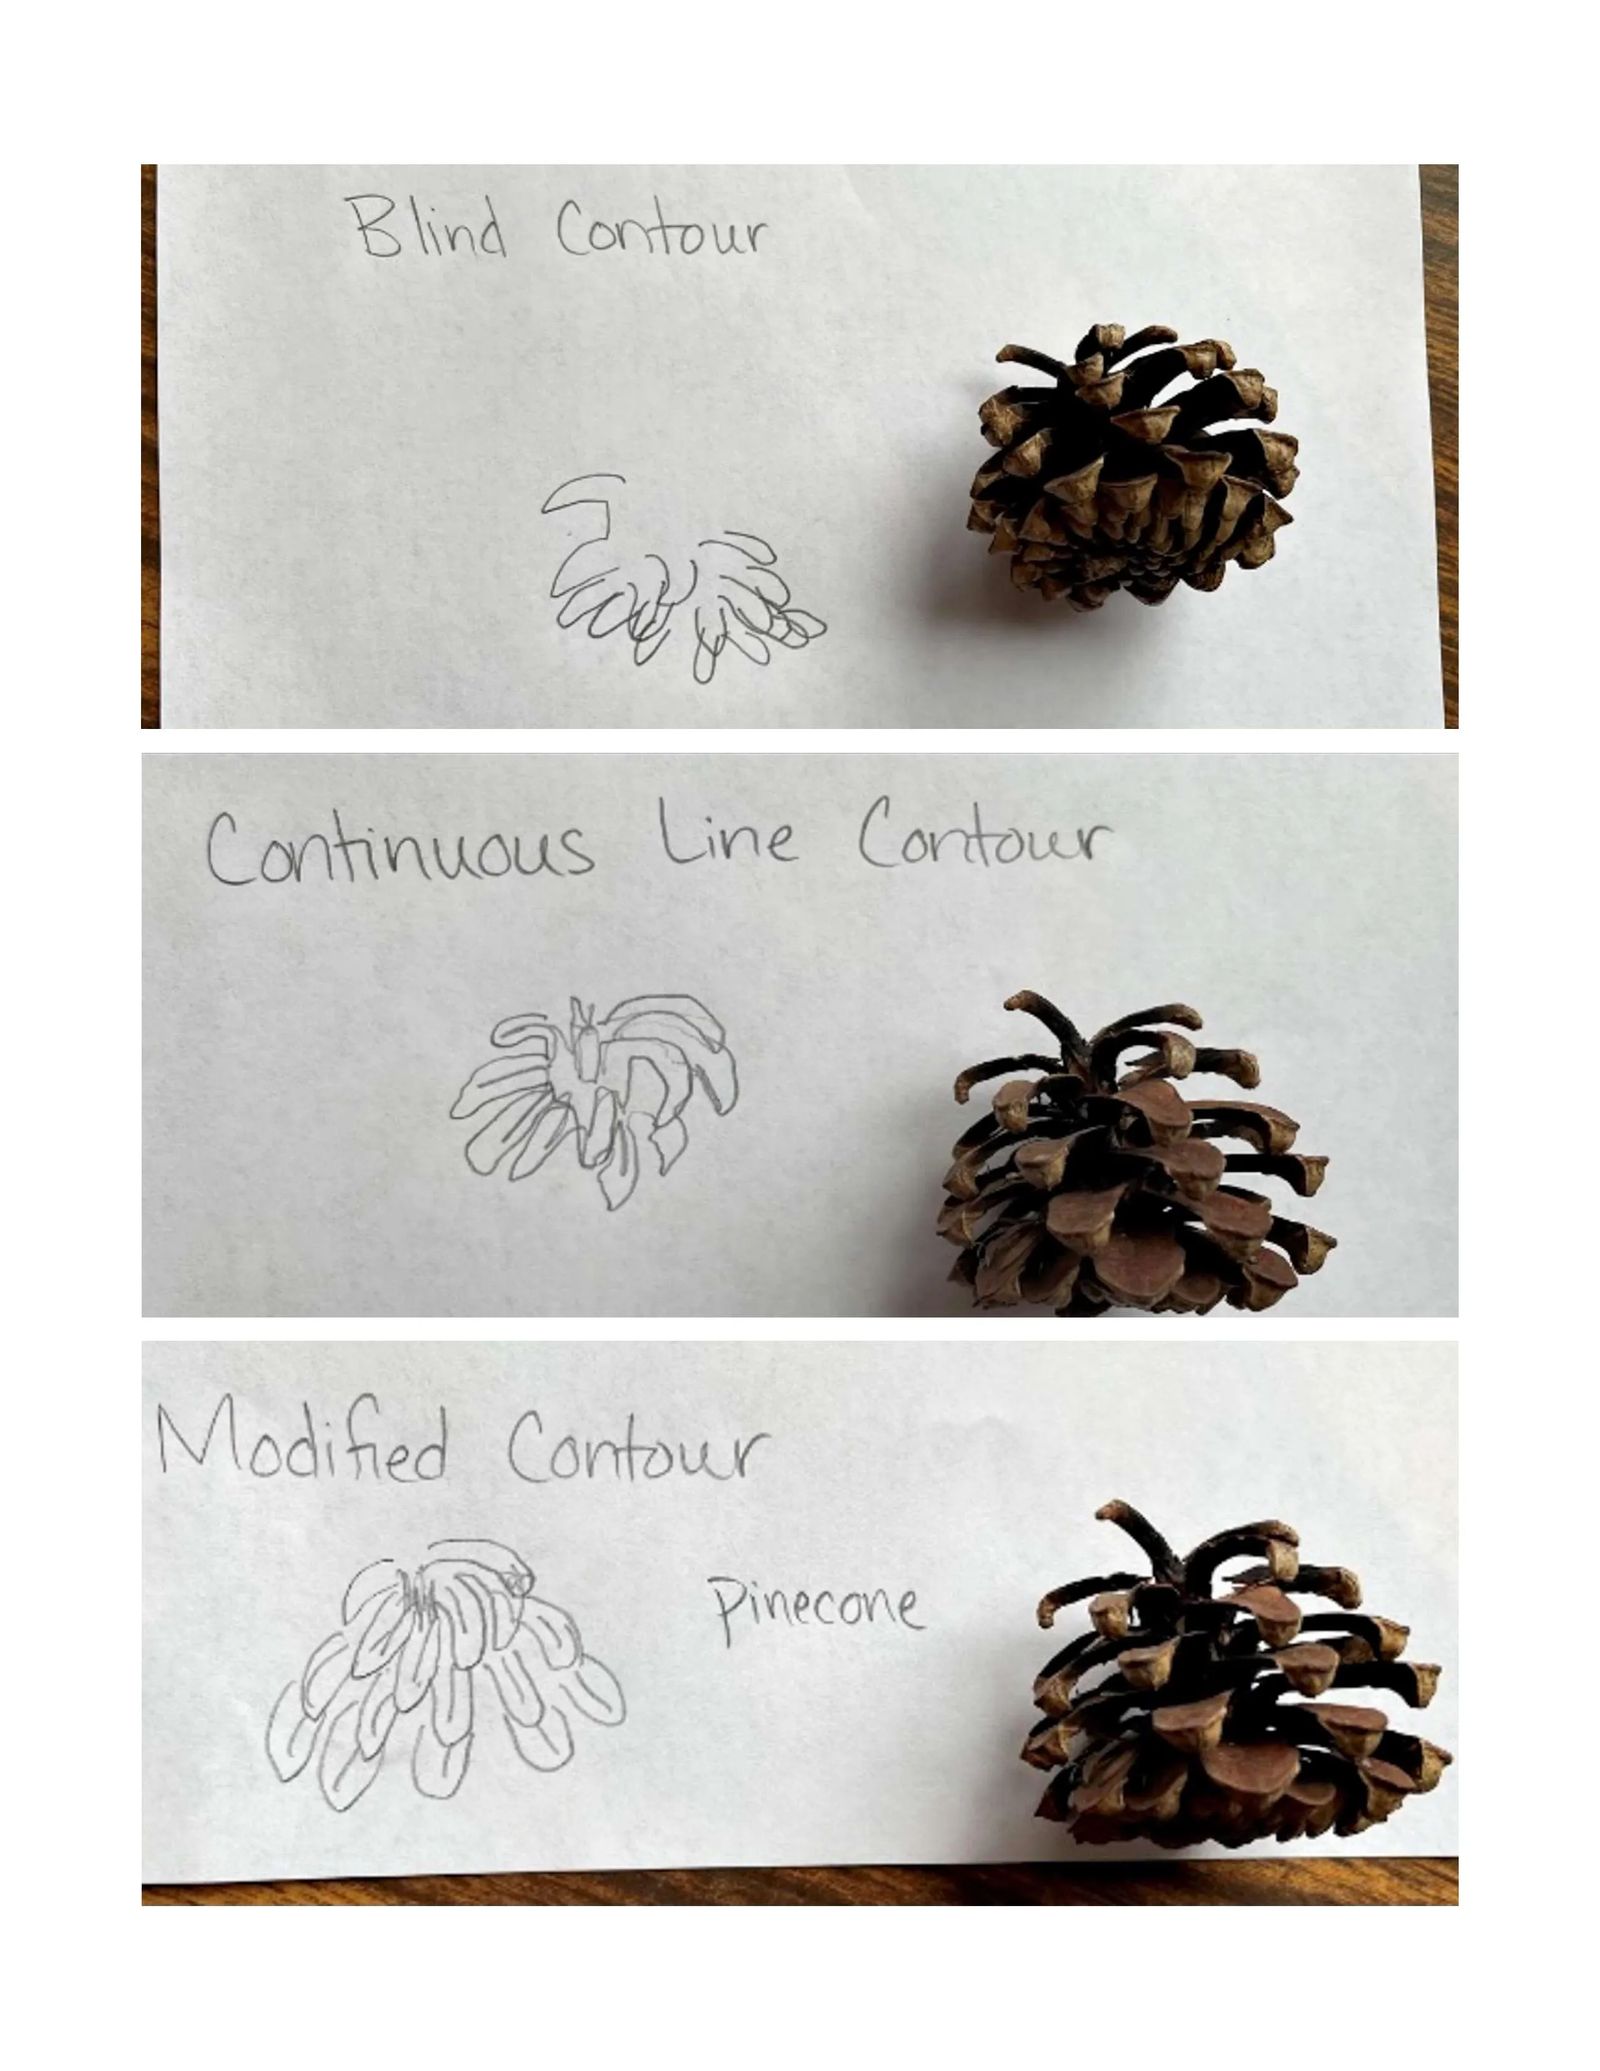 Blind Contour
Continuous Line Contour
Modified Contour
pinecone